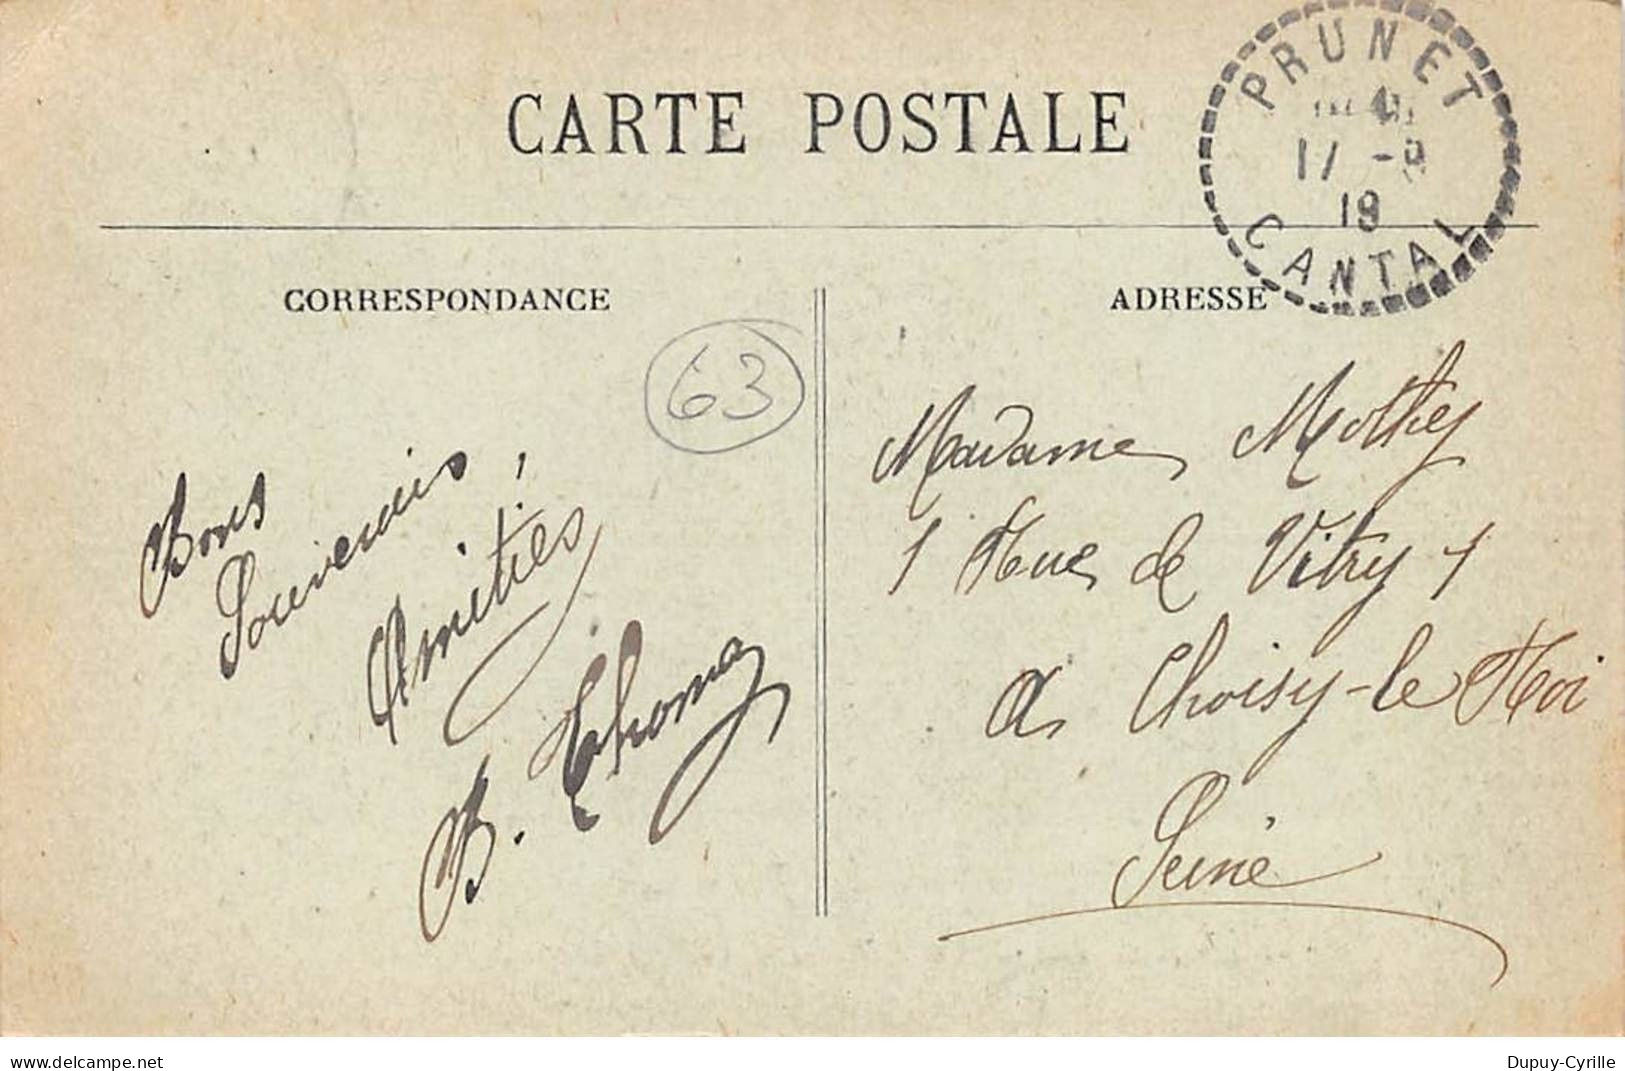 CARTE POSTALE
PRUNET
17 -9
19
CANTAL
CORRESPONDANCE
ADRESSE
63
Bons
Souvenirs,
Amitiés !
B. Thomas
Madame Mothey
1 Rue de Vitry 1
à Choisy-le Roi
Seine
www.delcampe.net
Dupuy-Cyrille